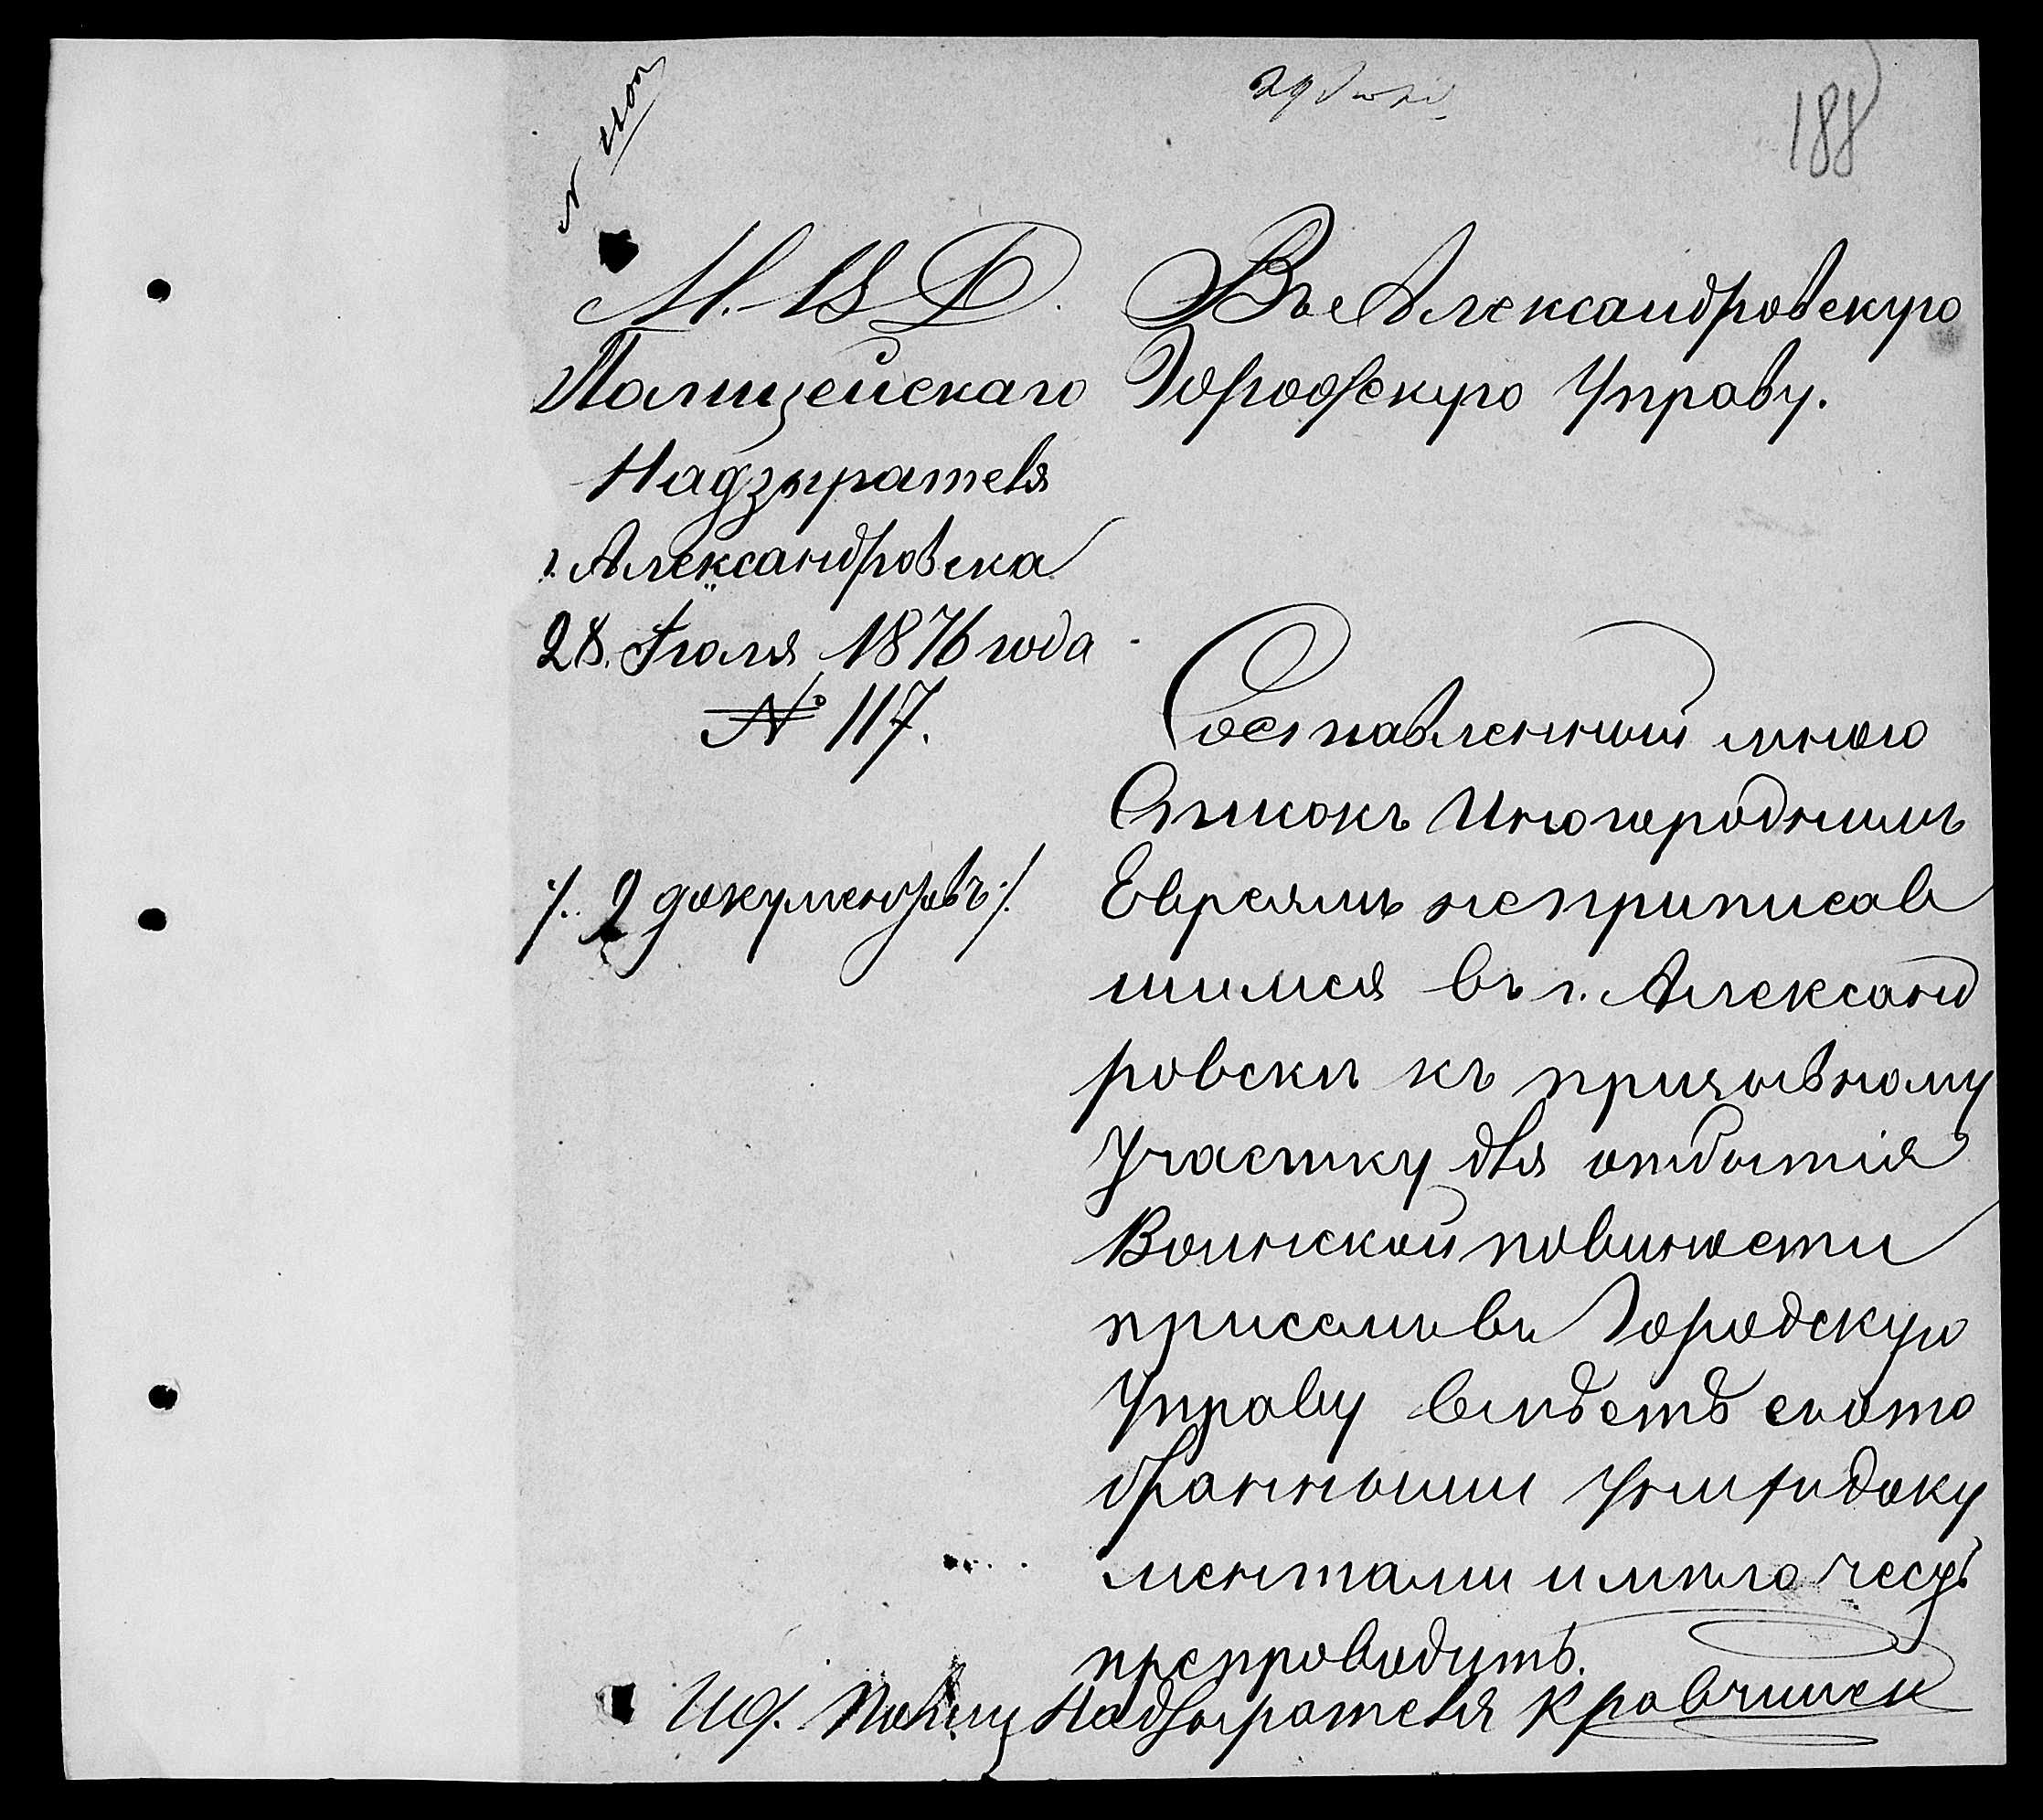 188
М. В. Д.
Полицейскаго
Надзирателя
г. Александровска
28. Іюля 1876 года
№ 117.
/. 2 документовъ ./.
Въ Александровскую
Городскую Управу.
Составленный мною
Списокъ Иногороднимъ
Евреямъ неприписав
шимся въ г. Александ
ровскѣ къ призывному
Участку для отбытія
Воинской повиности
при семъ въ Городскую
Управу вмѣстѣ сь ото
бранными у них доку
ментами имѣю честь
препроводить.
И д. Полиц Надзырателя